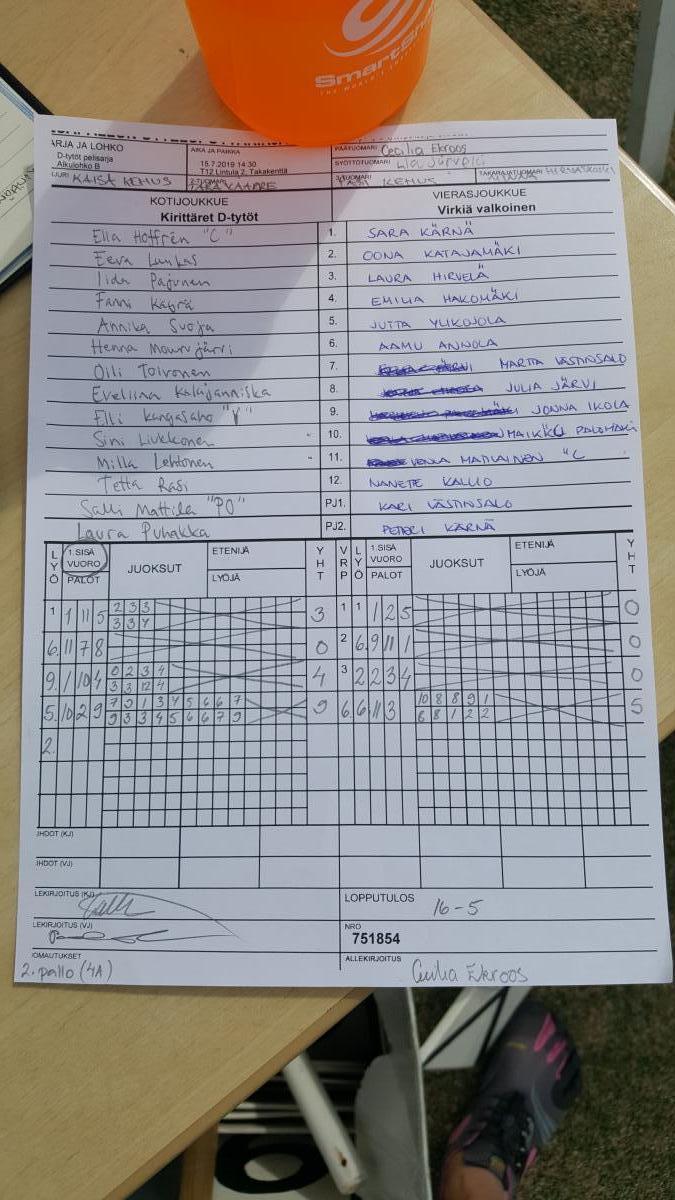 SARJA JA LOHKO
D-tytöt pelisarja
Alkulohko B
AIKA JA PAIKKA
15.7.2019 14:30
T12 Lintula 2, Takakenttä
PÄÄTUOMARI Cecilia Ekroos
SYÖTTÖTUOMARI
KAISA KEHUS
KEHUS
TAKARAJATUOMARI
KOTIJOUKKUE
Kirittäret D-tytöt
VIERASJOUKKUE
Virkiä valkoinen
Ella Hoffrén "C" 1. SARA KÄRNÄ
Eeva 2. OONA KATAJAMÄKI
Iida Pajunen 3. LAURA HIRVELÄ
Fanni 4. EMILIA HAKOMÄKI
Annika Suoja 5. JUTTA YLIKOJOLA
Henna 6. AAMU ANNOLA
Oili Toivonen 7. MARTTA VÄSTINSALO
Eveliina Kalajanniska 8. JULIA JÄRVI
Elli Kangasaho "V" 9. JONNA IKOLA
Sini Liukkonen 10. PALOMÄKI
Milla Lehtonen 11. VENLA MATILAINEN "C
Tetta Rasi 12. NANETE KALLIO
Salli Mattila "PO" PJ1. KARI VÄSTINSALO
Laura Puhakka PJ2. PETERI KÄRNÄ
LYÖ 1.SISÄ VUORO PALOT JUOKSUT ETENIJÄ LYÖJÄ YHT VRP LYÖ 1.SISÄ VUORO PALOT JUOKSUT ETENIJÄ LYÖJÄ YHT
1 1 11 5 2 3 3 3 1 1 1 2 5 0
3 3 4
6. 11 7 8 0 2 6. 9 11 1 0
9. 1 10 4 0 2 3 4 4 3 2 2 3 4 0
3 3 12 4
5. 10 2 9 7 9 1 3 4 5 6 6 7 9 6 6 11 3 10 8 8 9 1 5
9 3 3 4 5 6 6 7 9 6 8 1 2 2
2.
IHDOT (KJ)
IHDOT (VJ)
LEKIRJOITUS (KJ)
LOPPUTULOS 16-5
LEKIRJOITUS (VJ)
NRO
751854
OMAUTUKSET
2. pallo (4A)
ALLEKIRJOITUS Cecilia Ekroos